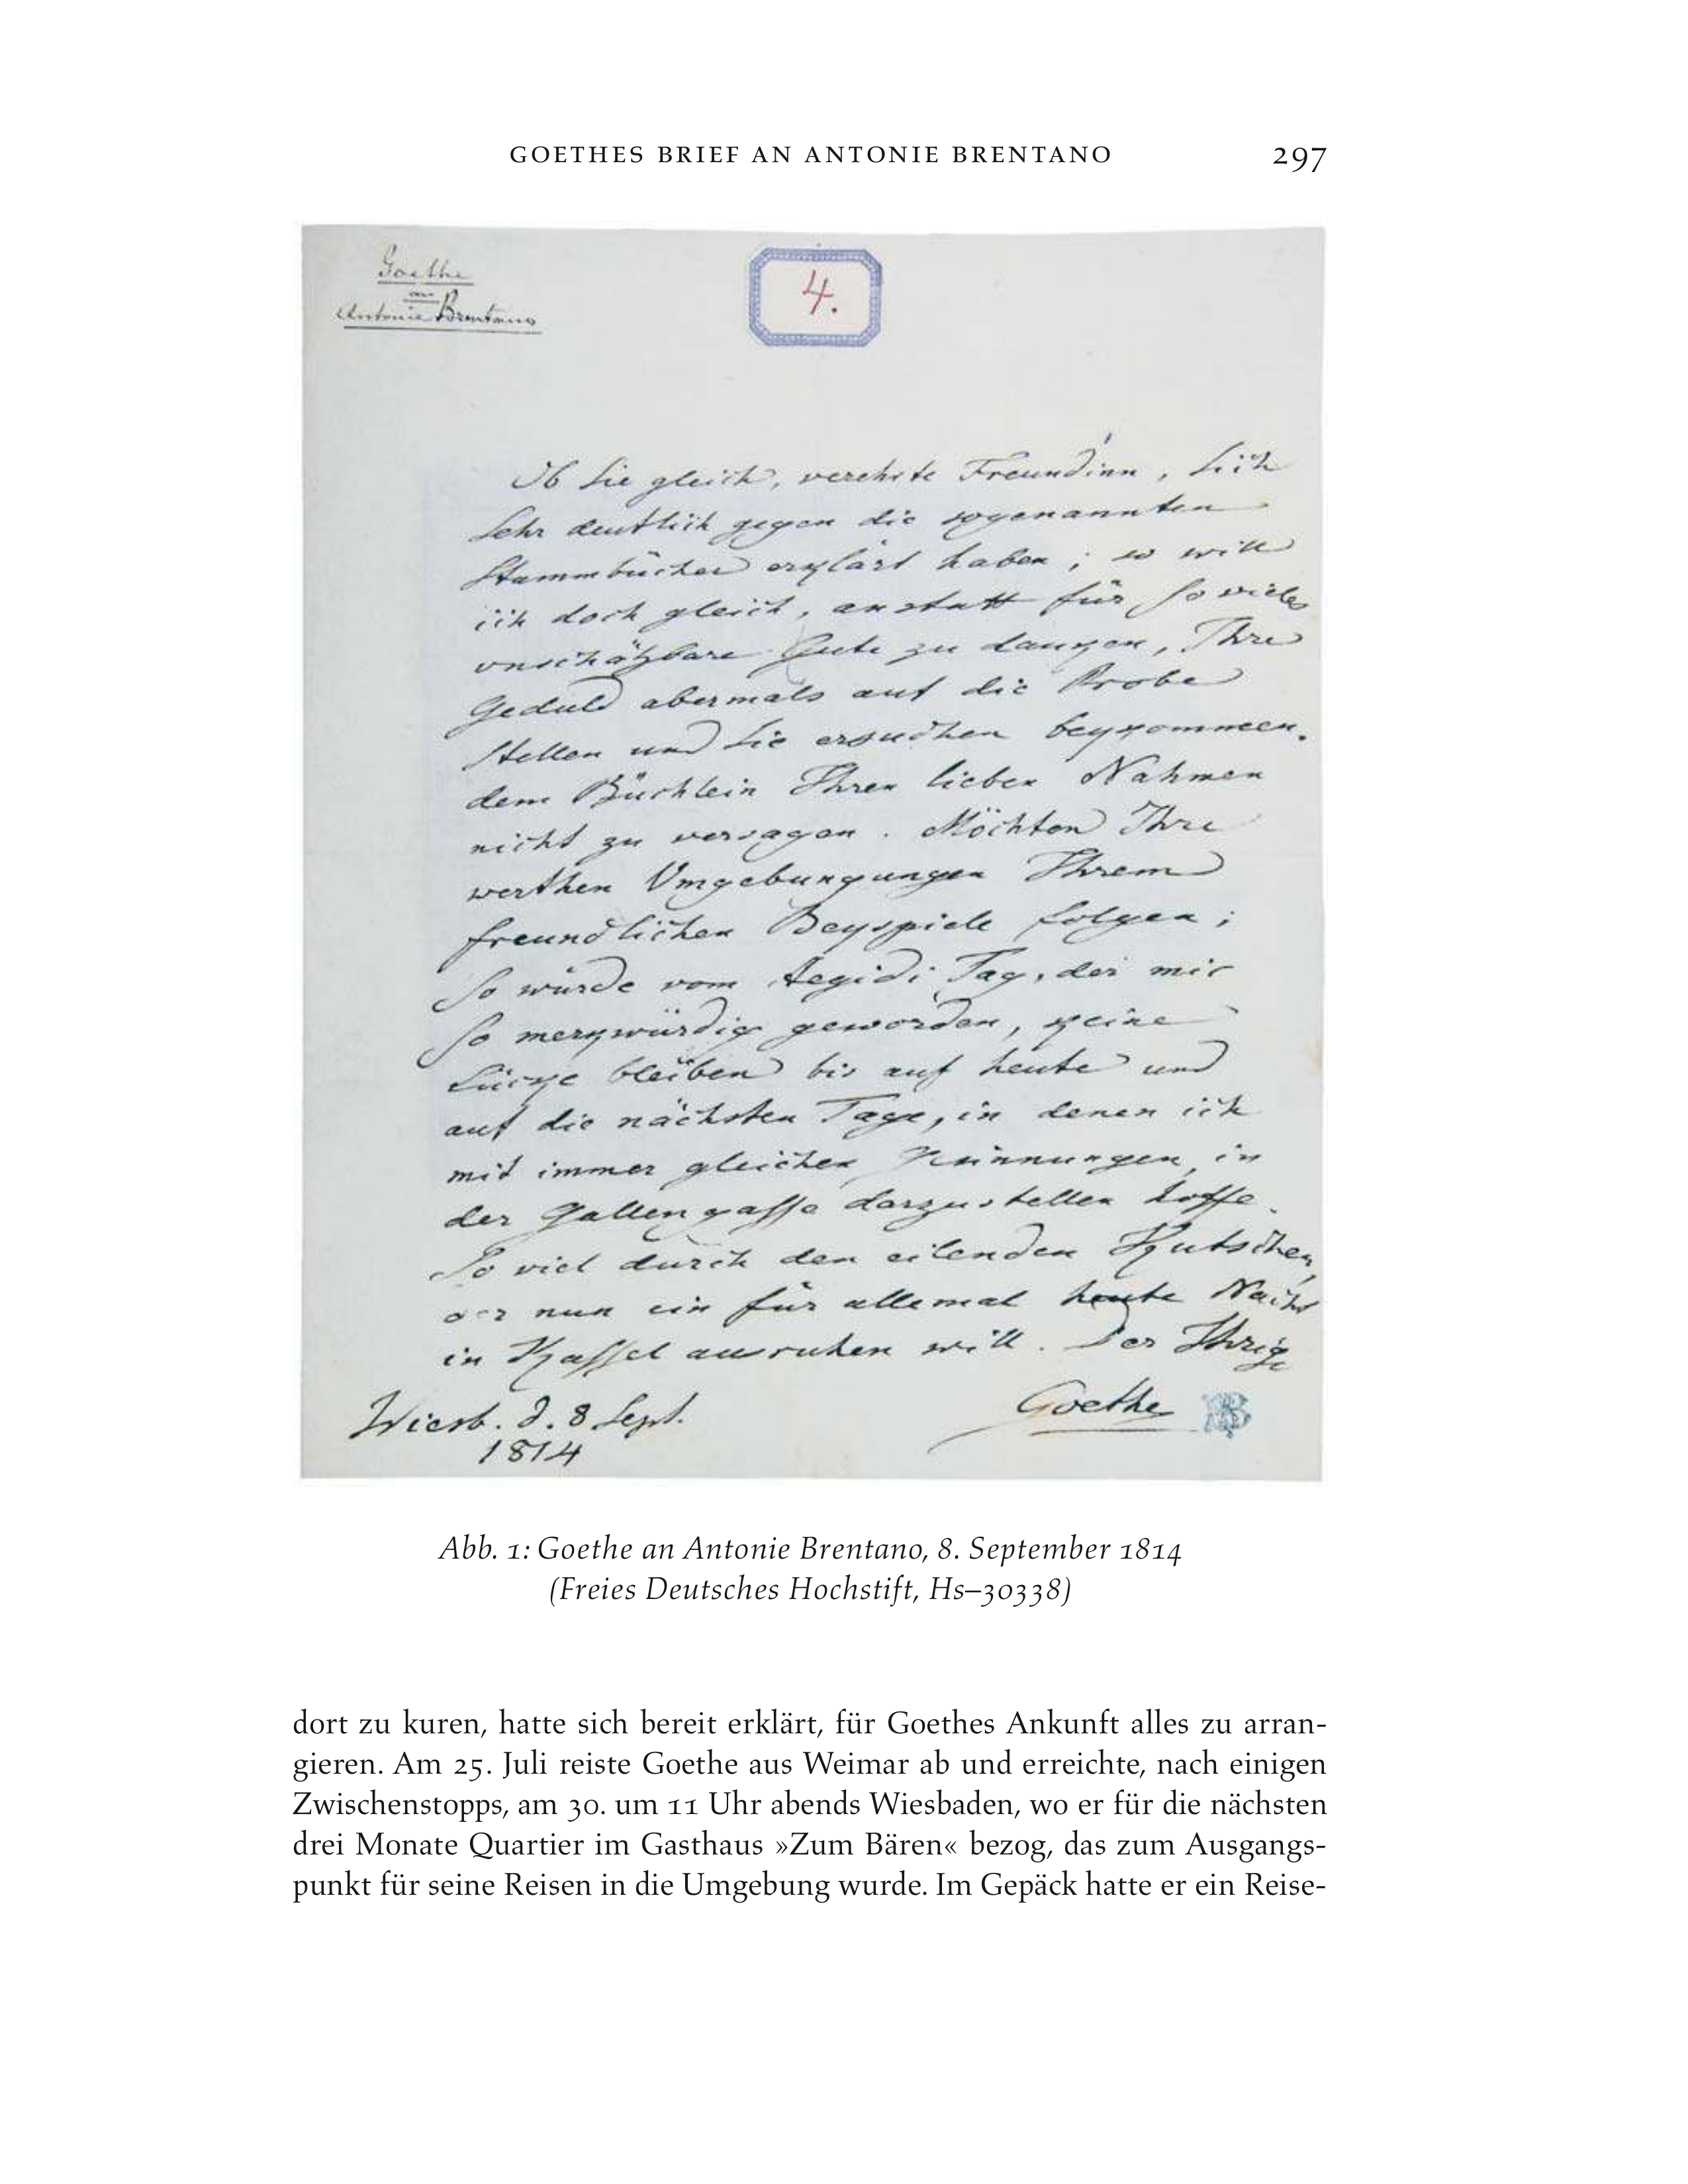 GOETHES BRIEF AN ANTONIE BRENTANO 297
Goethe
an
Antonie Brentano
4.
Ob Sie gleich, verehrte Freundinn, Sich
Sehr deutlich gegen die sogenannten
Stammbücher erklärt haben; so will
ich doch gleich, anstatt für so vieles
unschätzbare Gute zu dancken, Ihre
Geduld abermals auf die Probe
stellen und Sie ersuchen beykommen.
dem Büchlein Ihren lieben Nahmen
nicht zu versagen. Möchten Ihre
werthen Umgebungungen Ihrem
freundlichen Beyspiele folgen;
So würde vom Aegidi Tag, der mir
So merkwürdig geworden, keine
Lücke bleiben bis auf heute und
auf die nächsten Tage, in denen ich
mit immer gleichen in
der gasse darzustellen hoffe.
So viel durch den eilenden Kutscher,
der nun ein für allemal heute Nacht
in Kassel ausruhen will. Der Ihrige
Wiesb. d. 8 Sept. Goethe
1814
Abb. 1: Goethe an Antonie Brentano, 8. September 1814
(Freies Deutsches Hochstift, Hs–30338)
dort zu kuren, hatte sich bereit erklärt, für Goethes Ankunft alles zu arran-
gieren. Am 25. Juli reiste Goethe aus Weimar ab und erreichte, nach einigen
Zwischenstopps, am 30. um 11 Uhr abends Wiesbaden, wo er für die nächsten
drei Monate Quartier im Gasthaus »Zum Bären« bezog, das zum Ausgangs-
punkt für seine Reisen in die Umgebung wurde. Im Gepäck hatte er ein Reise-